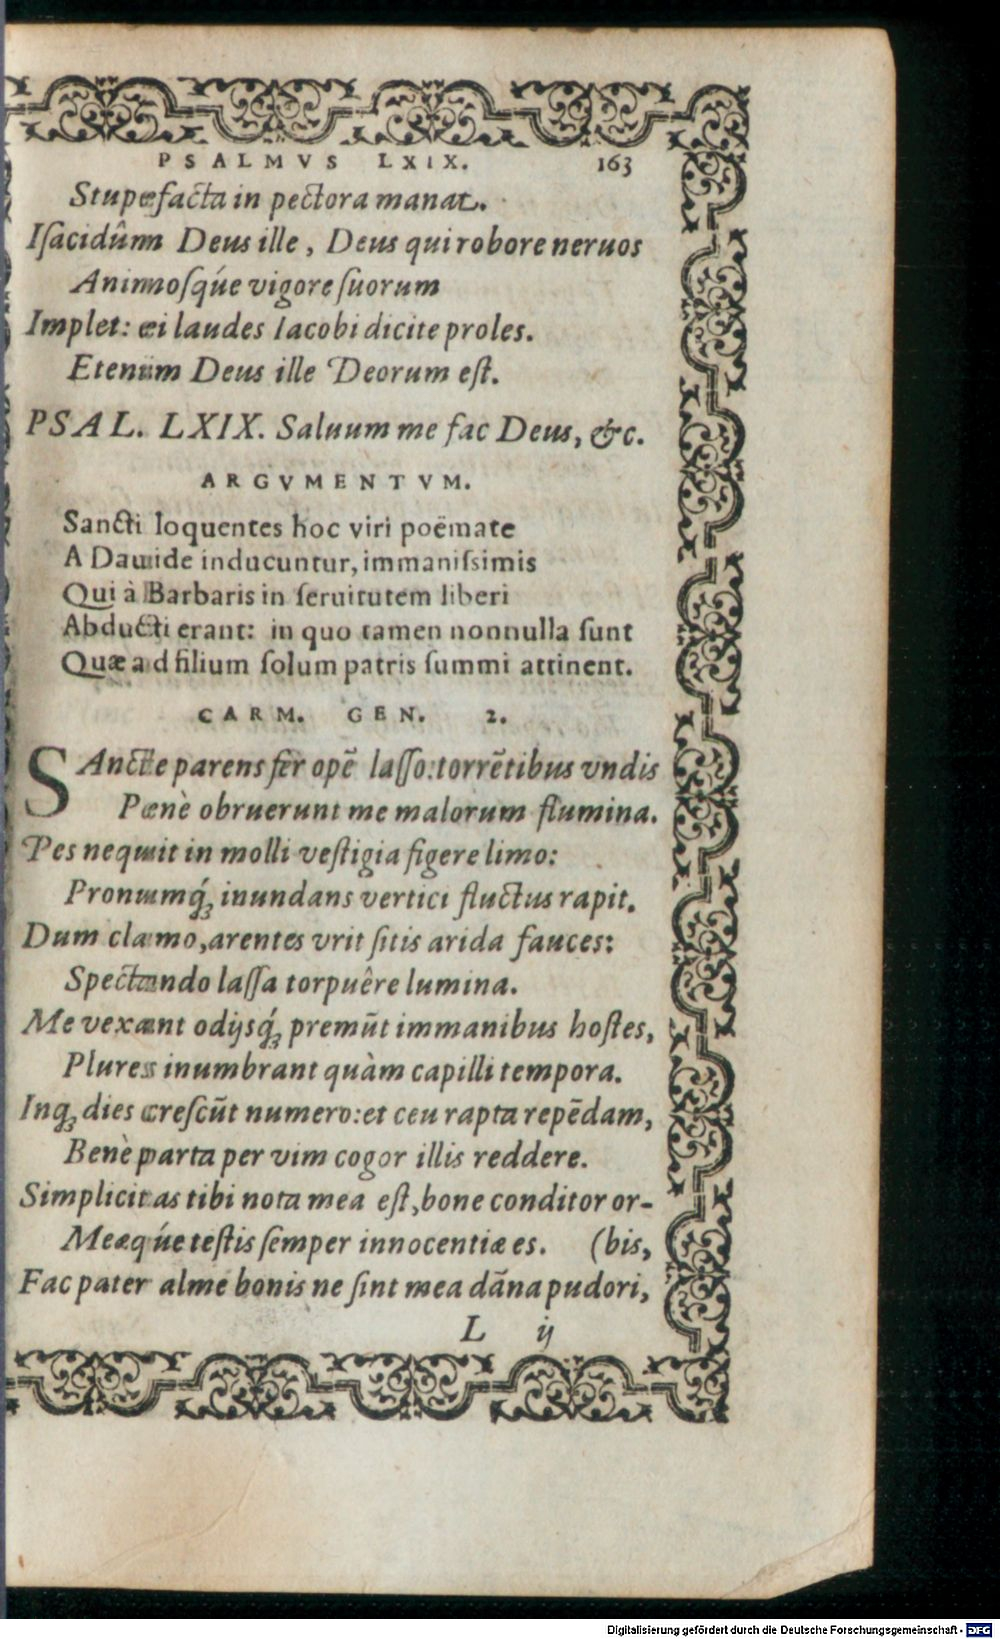 PSALMVS LXIX. 163
Stupefacta in pectora manat.
Iſacidûm Deus ille, Deus qui robore neruos
Animoſq́ue vigore ſuorum
Implet: ei laudes Iacobi dicite proles.
Etenim Deus ille Deorum eſt.
PSAL. LXIX. Saluum me fac Deus, &c.
ARGVMENTVM.
Sancti loquentes hoc viri poëmate
A Dauide inducuntur, immaniſsimis
Qui à Barbaris in ſeruitutem liberi
Abducti erant: in quo tamen nonnulla ſunt
Quæ ad filium ſolum patris ſummi attinent.
CARM. GEN. 2.
SAncte parens fer opẽ laſſo: torrẽtibus vndis
Penè obruerunt me malorum flumina.
Pes nequit in molli veſtigia figere limo:
Pronumq́ꝫ inundans vertici fluctus rapit.
Dum clamo, arentes vrit ſitis arida fauces:
Spectando laſſa torpuêre lumina.
Me vexant odijsq́ꝫ premũt immanibus hoſtes,
Plures inumbrant quàm capilli tempora.
Inqꝫ dies creſcũt numero: et ceu rapta repẽdam,
Benè parta per vim cogor illis reddere.
Simplicitas tibi nota mea eſt, bone conditor or-
Meæq́ue teſtis ſemper innocentiæ es. (bis,
Fac pater alme bonis ne ſint mea dãna pudori,
L ij
Digitalisierung gefördert durch die Deutsche Forschungsgemeinschaft - DFG